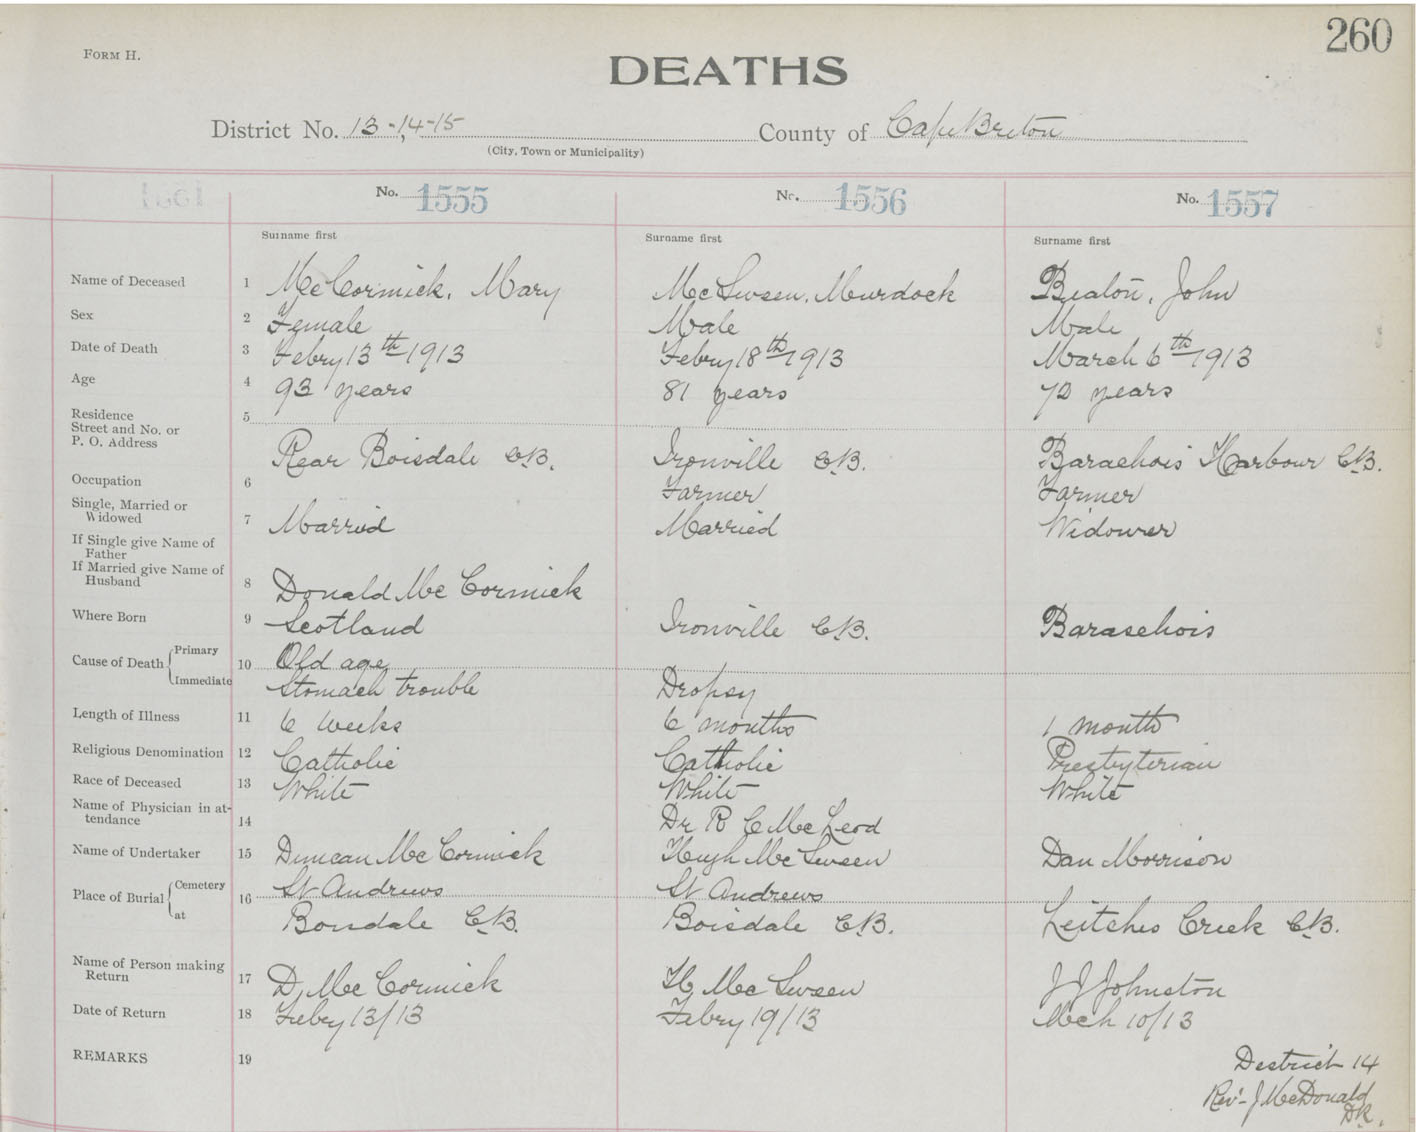 260
FORM H.
DEATHS
District No. 13-14-15 County of Cape Breton
(City, Town or Municipality)
No. 1555 No. 1556 No. 1557
Surname first Surname first Surname first
Name of Deceased 1 McCormick, Mary McSween, Murdock Beaton, John
Sex 2 Female Male Male
Date of Death 3 Febry 13th 1913 Febry 18th 1913 March 6th 1913
Age 4 93 years 81 years 72 years
Residence 5
Street and No. or
P. O. Address Rear Boisdale C.B. Ironville C.B. Barachois Harbour C.B.
Occupation 6 Farmer Farmer
Single, Married or
Widowed 7 Married Married Widower
If Single give Name of
Father
If Married give Name of
Husband 8 Donald McCormick
Where Born 9 Scotland Ironville C.B. Baraschois
Cause of Death Primary 10 Old age
Immediate Stomach trouble Dropsy
Length of Illness 11 6 weeks 6 months 1 month
Religious Denomination 12 Catholic Catholic Presbyterian
Race of Deceased 13 White White White
Name of Physician in at-
tendance 14 Dr R C McLeod
Name of Undertaker 15 Duncan McCormick Hugh McSween Dan Morrison
Place of Burial Cemetery 16 St Andrews St Andrews
at Boisdale C.B. Boisdale C.B. Leitches Creek C.B.
Name of Person making
Return 17 D, McCormick H McSween J J Johnston
Date of Return 18 Febry 13/13 Febry 19/13 Mch 10/13
REMARKS 19 District 14
Rev. J McDonald
D.R.